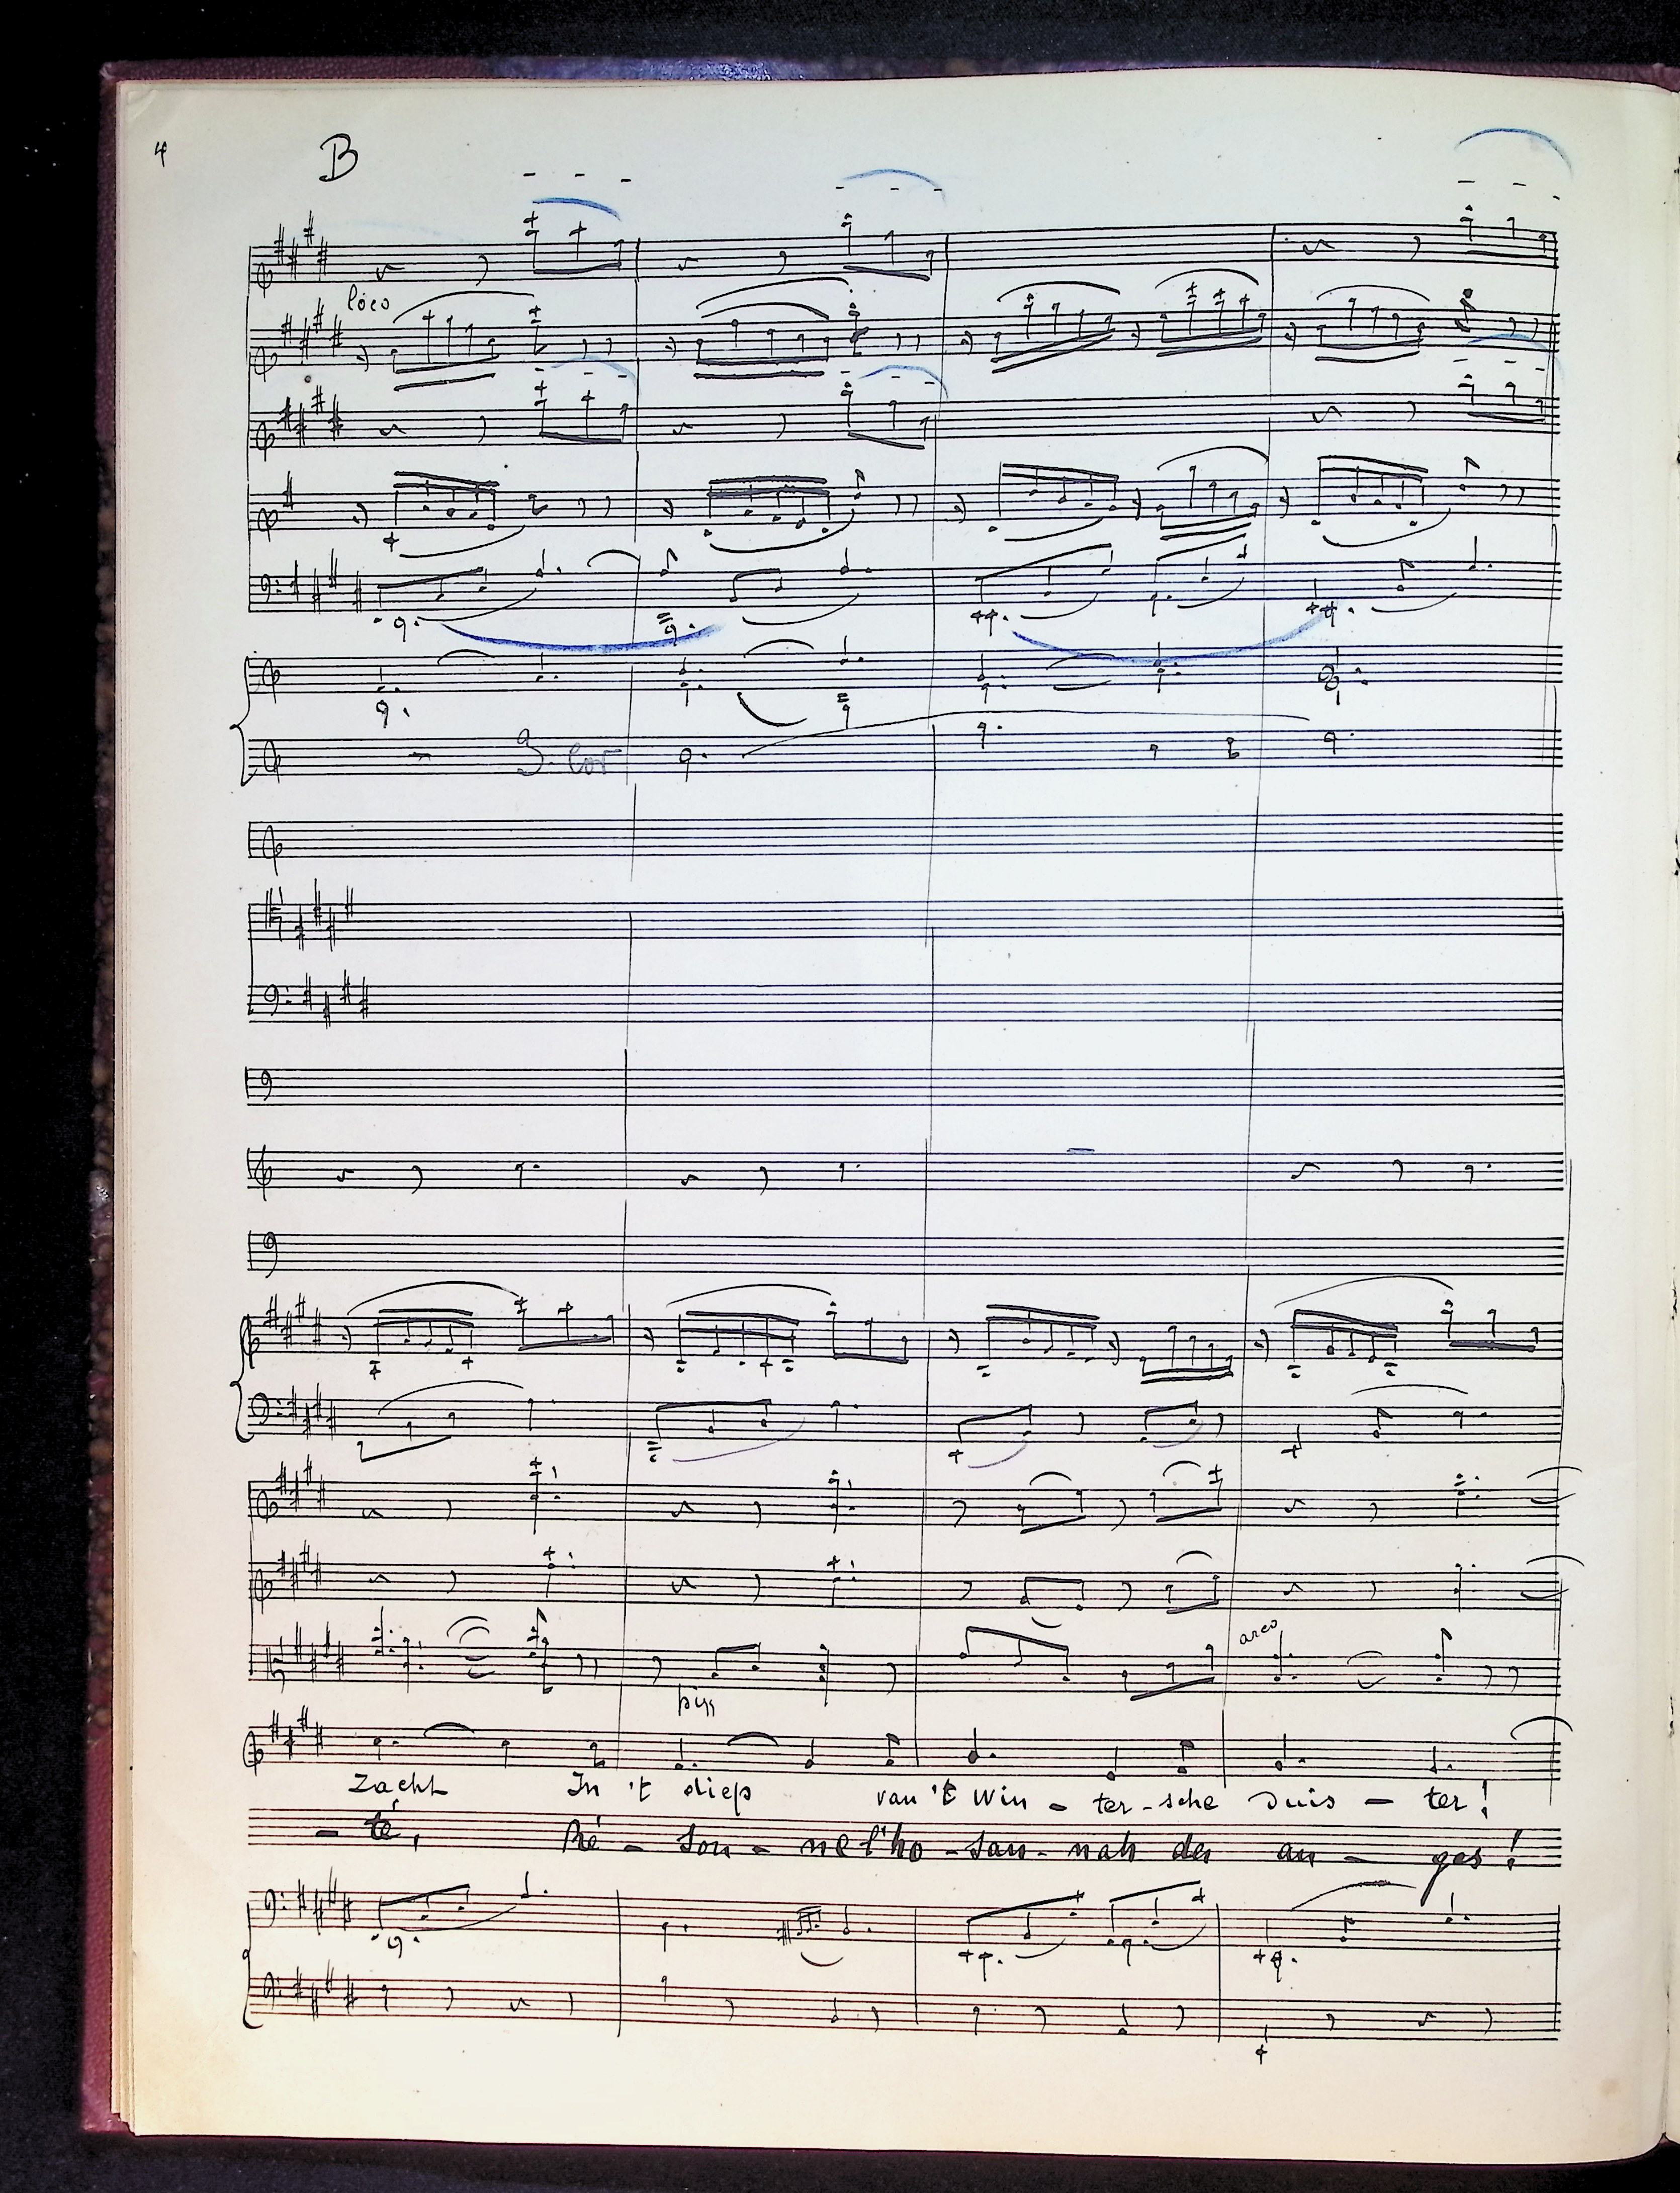 4
B
loco
3. Cor
pizz
arco
zacht In 't diep van 't win - ter - sche duis - ter!
- té, Ré - son - ne l'ho - san - nah des an - ges!